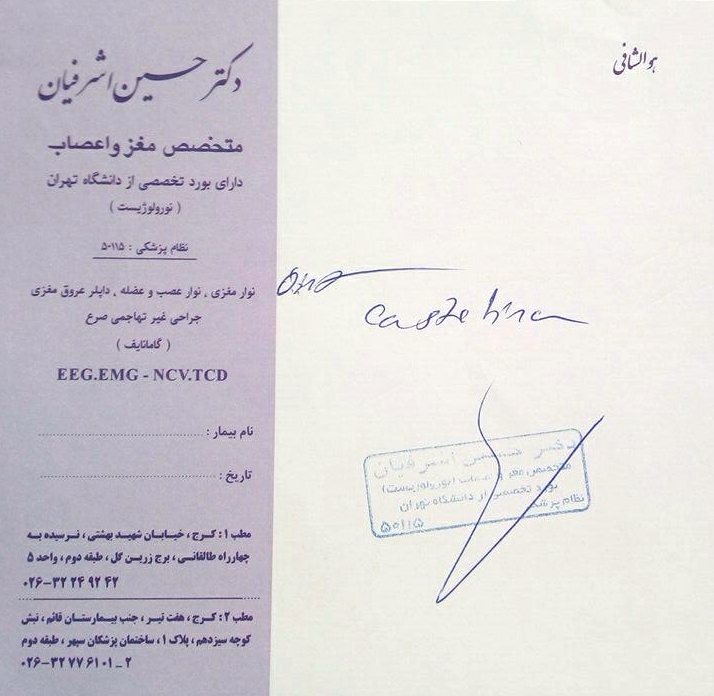 دکتر حسین اشرفیان
متخصص مغز و اعصاب
دارای بورد تخصصی از دانشگاه تهران
( نورولوژیست )
نظام پزشکی : ۵۰۱۱۵
نوار مغزی ، نوار عصب و عضله ، داپلر عروق مغزی
جراحی غیر تهاجمی صرع
( گامانایف )
EEG.EMG - NCV.TCD
نام بیمار :
تاریخ :
مطب ۱ : کرج ، خیابان شهید بهشتی ، نرسیده به
چهارراه طالقانی ، برج زرین گل ، طبقه دوم ، واحد ۵
۰۲۶-۳۲ ۲۴ ۹۲ ۴۲
مطب ۲ : کرج ، هفت تیر ، جنب بیمارستان قائم ، نبش
کوچه سیزدهم ، پلاک ۱ ، ساختمان پزشکان سپهر ، طبقه دوم
۰۲۶-۳۲ ۷۷ ۶۱ ۰۱ - ۲
هوالشافی
دکتر حسین اشرفیان
متخصص مغز و اعصاب (نورولوژیست)
بورد تخصصی از دانشگاه تهران
نظام پزشکی
۵۰۱۱۵